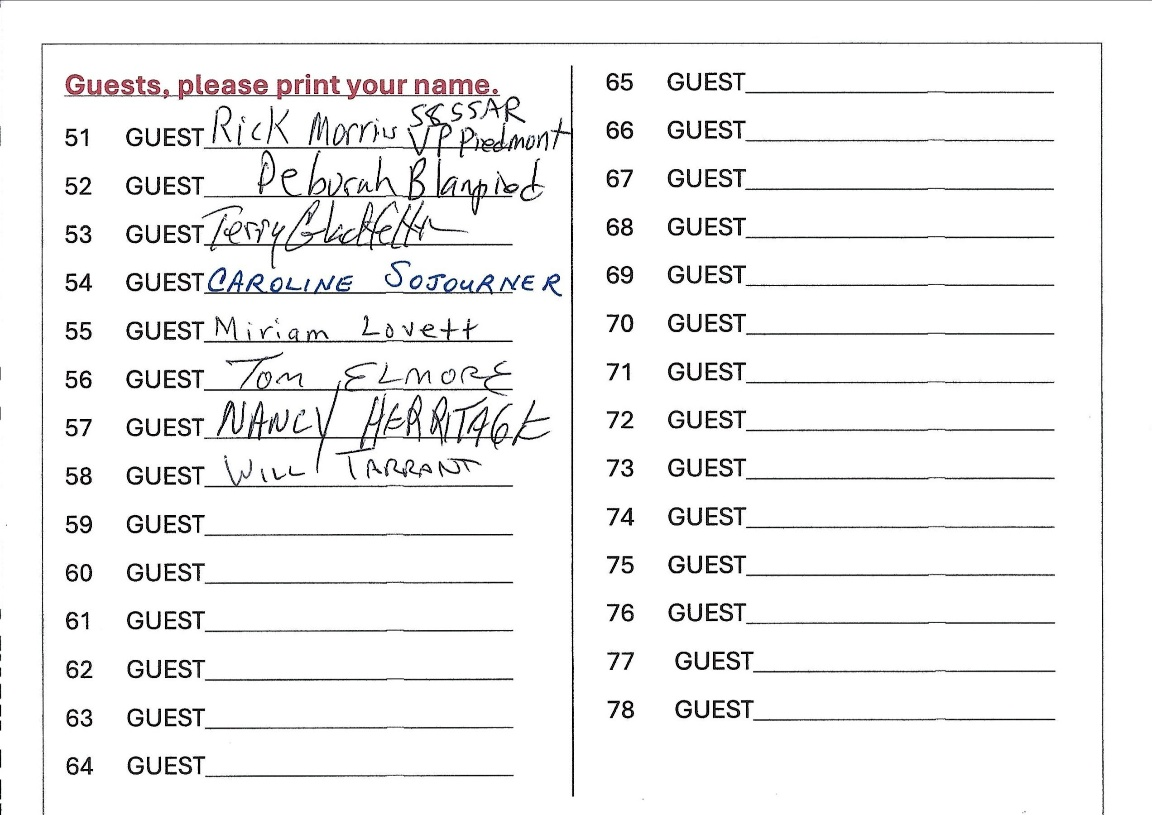 Guests, please print your name.
51 GUEST Rick Morris SCSSAR
VP Piedmont
52 GUEST Deborah Blanpied
53 GUEST Terry
54 GUEST CAROLINE SOJOURNER
55 GUEST Miriam Lovett
56 GUEST TOM ELMORE
57 GUEST NANCY HERRITAGE
58 GUEST WILL TARRANT
59 GUEST
60 GUEST
61 GUEST
62 GUEST
63 GUEST
64 GUEST
65 GUEST
66 GUEST
67 GUEST
68 GUEST
69 GUEST
70 GUEST
71 GUEST
72 GUEST
73 GUEST
74 GUEST
75 GUEST
76 GUEST
77 GUEST
78 GUEST